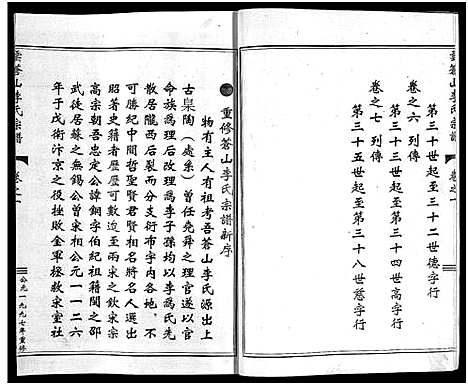 雲蒼山李氏宗譜 卷之一
第三十世起至三十二世德字行
卷之六 列傳
第三十三世起至第三十四世高字行
卷之七 列傳
第三十五世起至第三十八世慈字行
重修蒼山李氏宗譜新序
物有主人有祖考吾蒼山李氏源出上
古臯陶（处喿）曾任堯舜之理官遂以官
命族爲理后改理爲李子孫均以李爲氏先
散居隴西后裔分支衍布宇内各地、不
可勝紀中中外外賢君賢相名將名人選出
昭著史籍者歷歷可数至兩宋之欽宋宗
高宗朝吾忠定公諱銅字伯紀祖籍閩之邵
武徒居蘇之無錫公曾宋相公元一一二六
年于戍衛汴京之役挫敗金軍拯救宋室社
雲蒼山李氏宗譜 卷之一
公元一九九七年重修